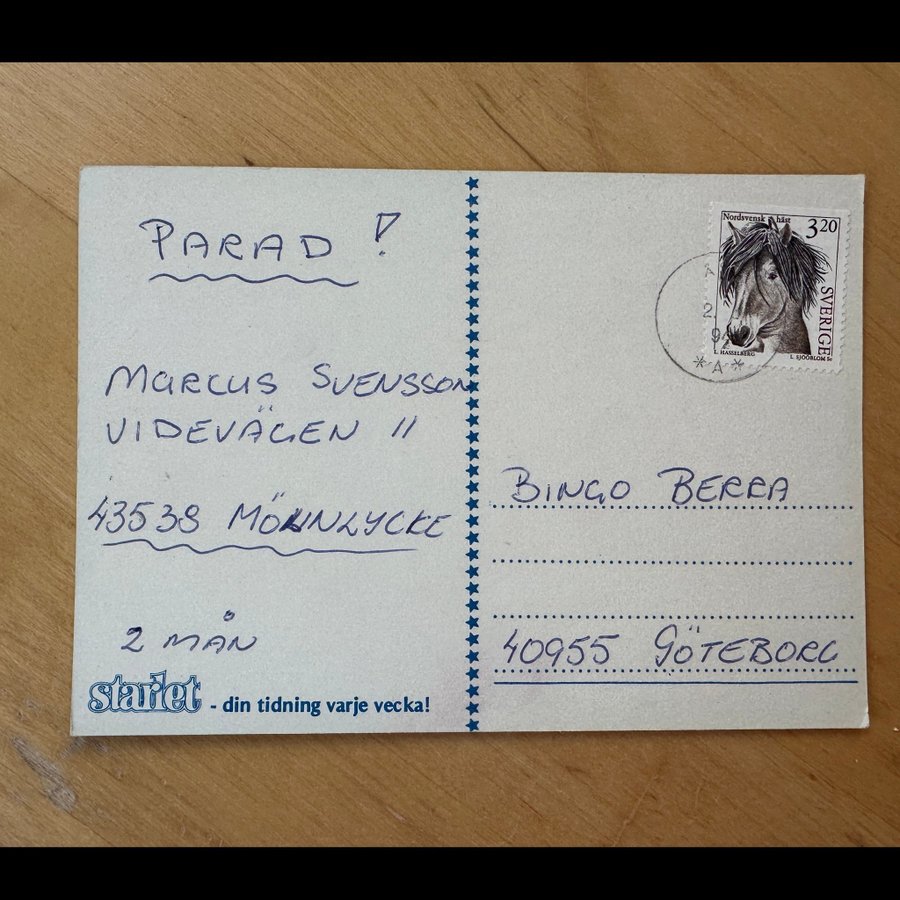 PARAD!
MARCUS SVENSSON
VIDEVÄGEN 11
43538 MÖLNLYCKE
2 MÅN
starlet - din tidning varje vecka!
Nordsvensk häst
320
SVERIGE
L. HASSELBERG
L. SJÖÖBLOM Sc
A
2
9
* A *
BINGO BERRA
40955 GÖTEBORG